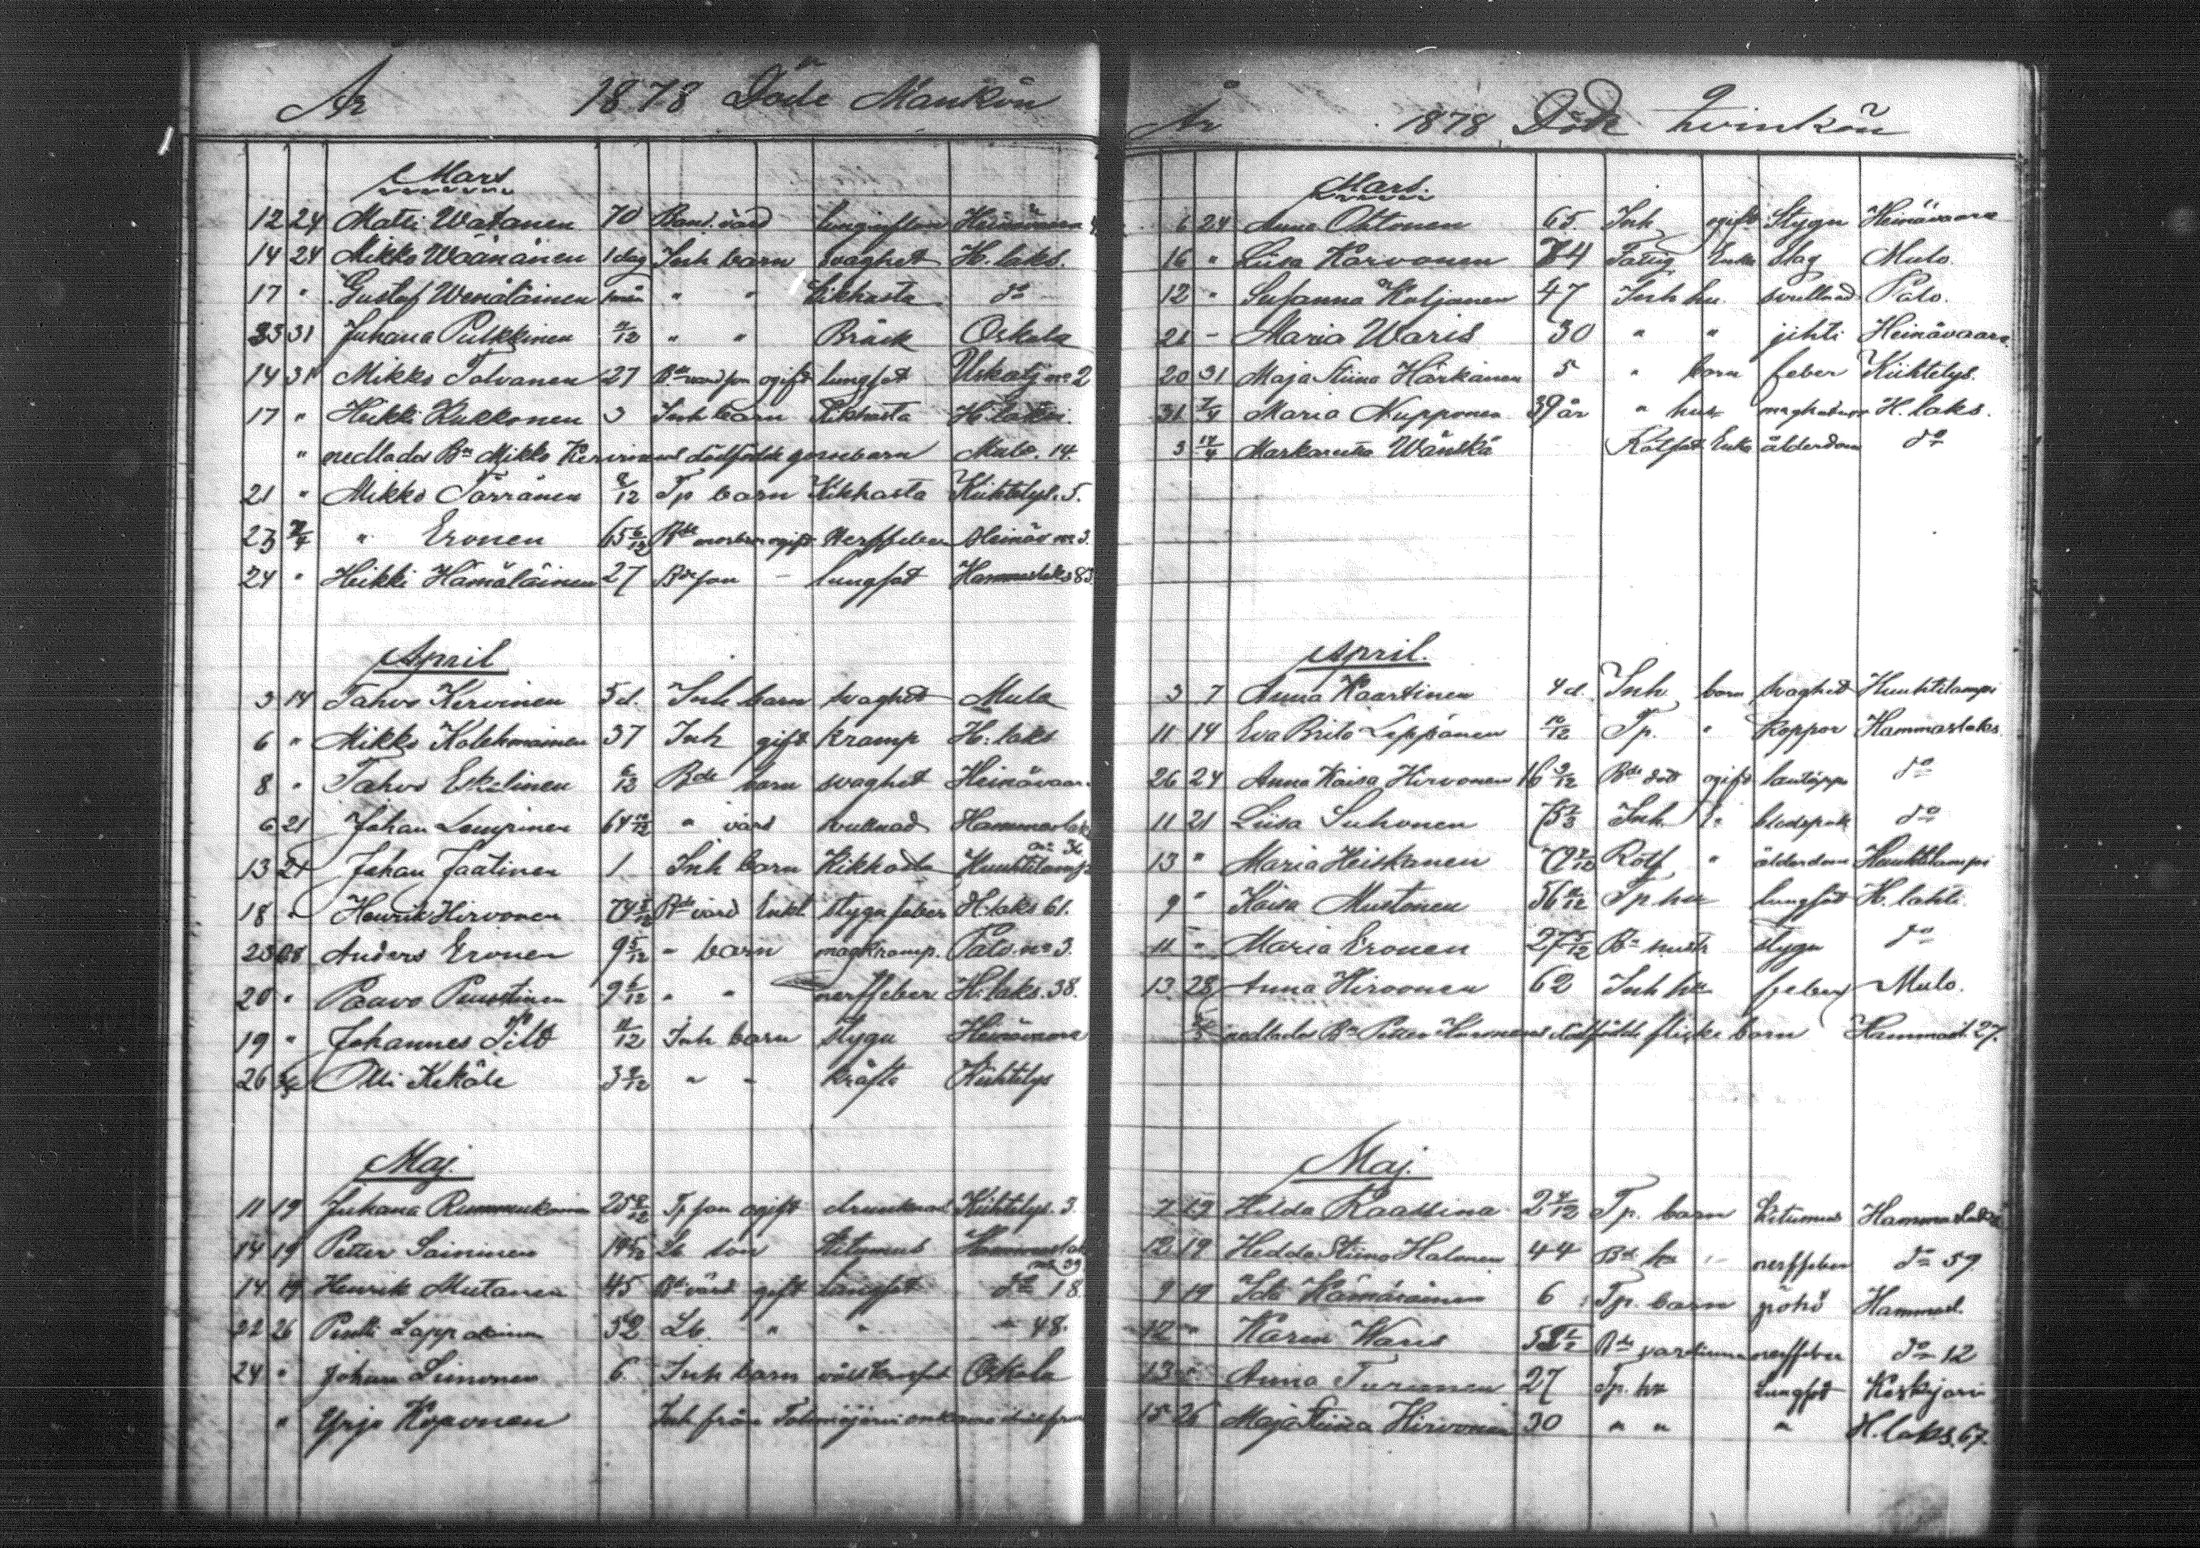 År 1878 Döde Mankön
Mars
12 24 Matti Watanen 70 Bond. värd Heinävaara
14 24 Mikko Wäänänen 1 dag Inh barn svaghet H. laks.
17 " Gustaf Wenäläinen 1 mån " " Kikhosta do
31 Juhana Pulkkinen /12 " " Bråck Oskola
14 31 Mikko Tolvanen 27 ogift lungsot Uskalj no 2
17 " Heikki Kukkonen 3 Inh barn Kikhosta H. laksi.
" nedlades Bn Mikko dödfödde gossbarn Mulo. 14.
21 " Mikko Törrönen 8/12 Tp barn Kikhosta Kiihtelys. 5.
23 7/4 " Eronen 65 6/12 Bde ogift Nerffeber Heinäv no 3.
24 " Heikki Hämäläinen 27 Bde son – lungsot Hammaslaks 83.
April
3 14 Tahvo Kervinen 5 d. Inh barn svaghet Mula
6 " Mikko Kolehmainen 37 Inh gift kramp H. laks
8 " Tahvo Eskelinen 6/12 Bde barn svaghet Heinävaar
6 21 Johan Lempinen 64 10/12 " värd svullnad Hammaslaks
no 36
13 21 Johan Jaatinen 1 Inh barn Kikhosta Huuhtilampi
18 " Henrik Hirvonen 74 Bde värd Enkl. stygn feber H. laks 61.
23 28 Anders Eronen 9 5/12 " barn magkramp. Palo. no 3.
20 " Paavo Puustinen 9 6/12 " " nerffeber H. laks. 38.
19 " Johannes Pild 11/12 Inh barn stygn Heinävaara
26 Olli Kekäle 3 " " kräfta Kiihtelys
Maj.
11 19 Juhana 25 8/12 Tp son ogift drunknad Kiihtelys. 3.
14 19 Petter Saininen 19 5/12 Lb son Hammaslaks
no 39
14 19 Henrik Mutanen 45 Bde värd gift lungsot do 18
22 26 Pentti Lappalainen 52 Lb. " " " 48.
24 " Johan Simonen 6 Inh barn Oskola
" Yrjö Koponen Inh från

År 1878 Döde Qvinkön
Mars.
6 24 Anna Ohtonen 65. Inh ogift Stygn Heinävaara
16 " Liisa Karvonen 74 Fattig Enka slag Mulo.
12 " Susanna Kuljunen 47 Inh hu. svullnad Palo.
21 – Maria Waris 30 " " jihti Heinävaara.
20 31 Maja Stiina Härkänen 5 " barn feber Kiihtelys.
31 7/4 Maria Nupponen 39 år " hust H. laks.
3 14/4 Enka ålderdom do
April.
3 7 Anna Kaartinen 4 d. Inh barn svaghet Huuhtilampi
11 14 Eva Brita Leppänen 10/12 Tp. " koppor Hammaslaks.
26 24 Anna Kaisa Hirvonen 16 9/12 Bde dott ogift do
11 21 Liisa Suhonen Inh. do
13 " Maria Heiskanen " ålderdom Huuhtilampi
9 " Kaisa Mustonen 56 11/12 Tp hu lungsot H. lahti.
11 " Maria Eronen 27 Bn hustr stygn do
13 28 Anna Hirvonen 62 Inh hu feber Mulo.
nedlades Bn Petter dödfödde flicke barn Hammasl. 27.
Maj.
7 19 Hilda Kaassina 2 Tp. barn Hammaslaks
12 19 Hedda Stiina Halonen 44 Bde hu nerffeber do 59
9 19 Ida Hämäläinen 6 Tp. barn pöhö Hammasl.
12 " Karin Waris Bde värdinna nerffeber do 12
13 " Anna Turunen 27 Tp. hu lungsot Keskijärvi
15 26 Maja Stiina Hirvonen 30 " " " H. laks. 67.